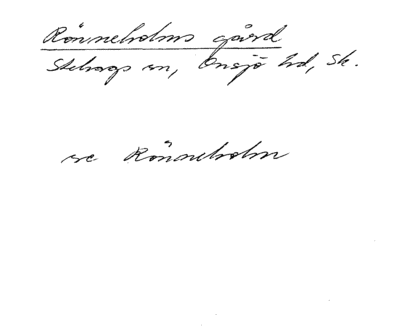 Rönneholms gård
Stehags sn, Onsjö hd, Sk.
se Rönneholm